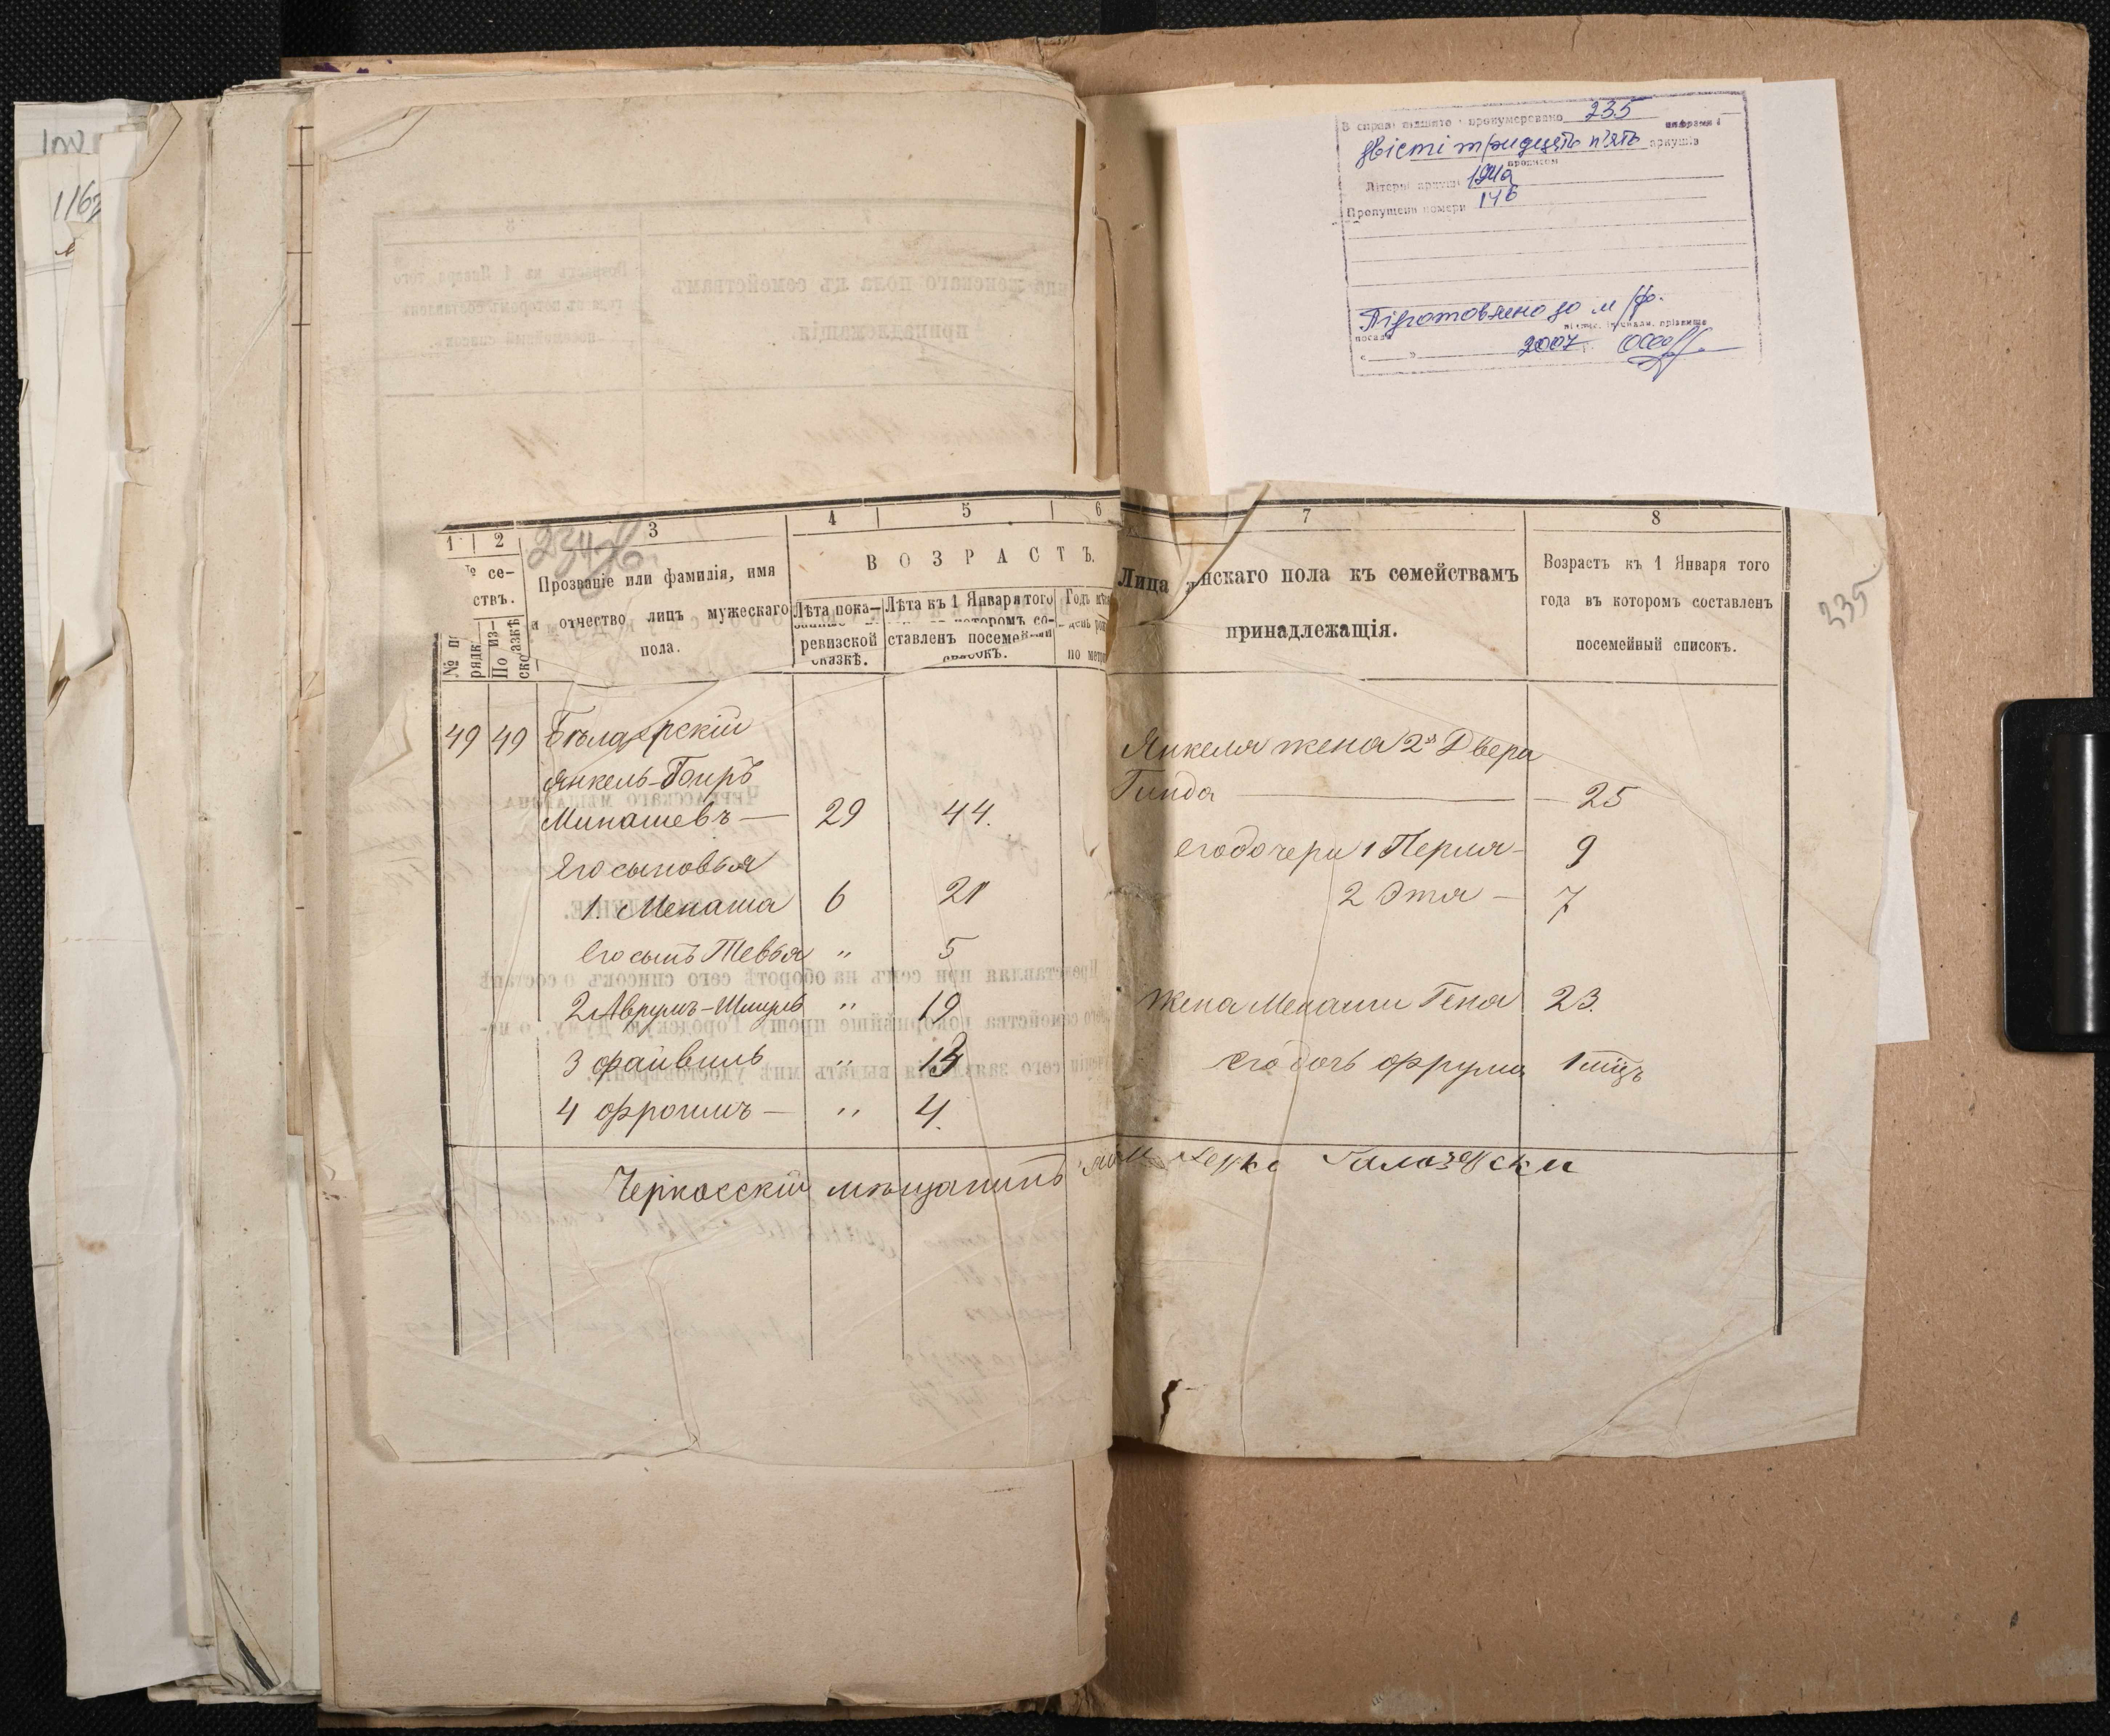 В справі підшито і пронумеровано 235
цифрами і
двісті тридцять п'ять аркушів
прописом
Літерні аркуші 194а
Пропущені номери 146
Підготовлено до м/ф.
посада підпис, ініціали, прізвище
« » 2007 р.
1 2 3 4 5 6
234 об
№ се-
ствъ.
№ по
рядк.
По из-
сказкѣ
Прозваніе или фамилія, имя
и отчество лицъ мужескаго
пола.
ВОЗРАСТЪ.
Лѣта пока-
ревизской
сказкѣ.
Лѣта къ 1 Января того
которомъ со-
ставленъ посемейный
списокъ.
Годъ мѣс
день рож
по метри
7 8
Лица женскаго пола къ семействамъ
принадлежащія.
Возрастъ къ 1 Января того
года въ которомъ составленъ
посемейный списокъ.
235
49 49
Янкель-
Минашевъ — 29 44.
Его сыновья
1 Менаша 6 21
Его сынъ Тевья " 5
2 Аврумъ-Шмуль " 19
3 Файвиль " 13
4 Фроимъ — " 4.
Янкеля жена 2я Двера
Гинда — 25
его дочери 1 Перля — 9
2 Этя — 7
Жена Менаши Геня 23.
его дочь Фрума 1 мцъ
Черкасскій мѣщанинъ